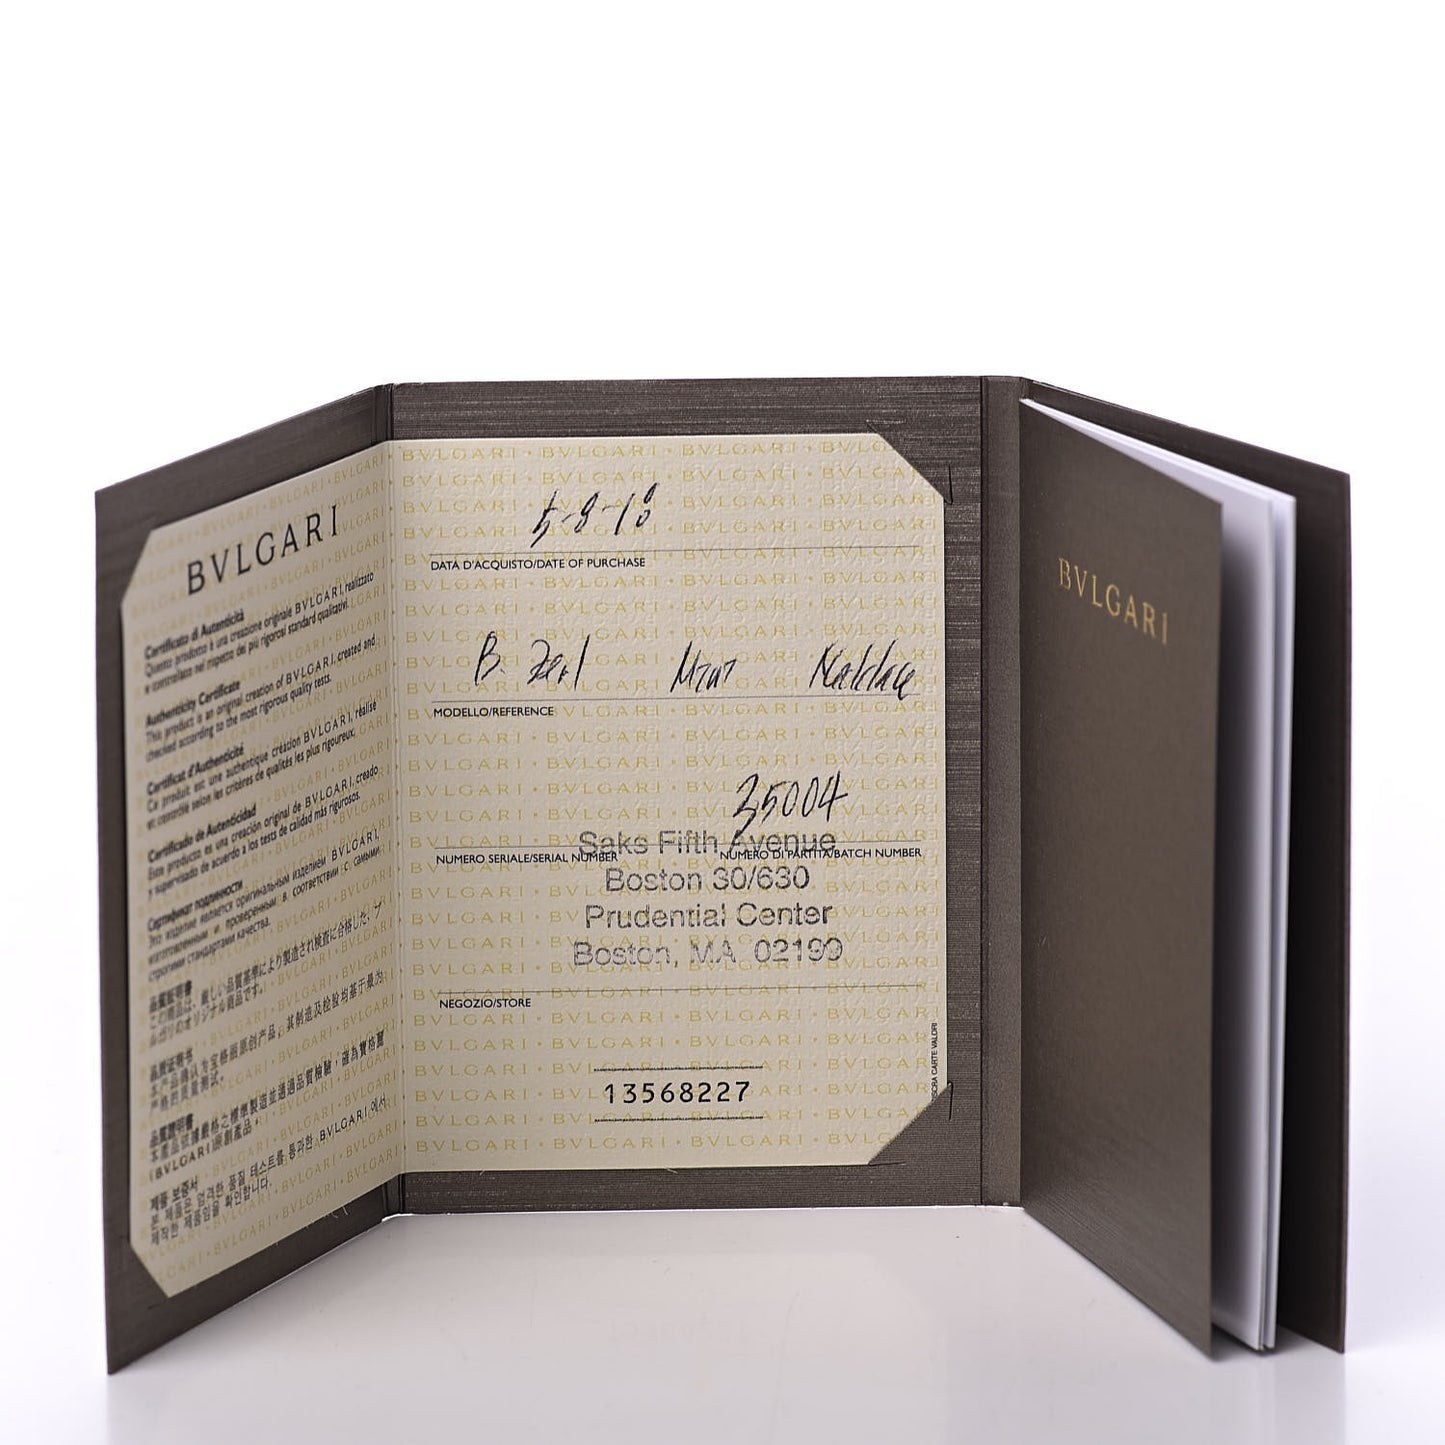 BVLGARI
Certificato di Autenticità
Questo prodotto è una creazione originale BVLGARI, realizzato
e controllato nel rispetto dei più rigorosi standard qualitativi.
Authenticity Certificate
This product is an original creation of BVLGARI, created and
checked according to the most rigorous quality tests.
Certificat d'Authenticité
Ce produit est une authentique création BVLGARI, réalisé
et contrôlé selon les critères de qualités les plus rigoureux.
Certificado de Autenticidad
Este producto es una creación original de BVLGARI, creado
y supervisado de acuerdo a los tests de calidad más rigurosos.
Сертификат подлинности
Это изделие является оригинальным изделием BVLGARI,
изготовленным и проверенным в соответствии с самыми
строгими стандартами качества.
品質証明書
この商品は、厳しい品質基準により製造され検査に合格した、ブ
ルガリのオリジナル商品です。
品质证明书
本产品确认为宝格丽原创产品，其制造及检验均基于最为
严格的质量测试。
品質證明書
本產品依據嚴格之標準製造並通過品質檢驗，確為寶格麗
(BVLGARI)原創產品。
제품 보증서
본 제품은 엄격한 품질 테스트를 통과한, BVLGARI 에서
제작한 제품임을 확인합니다.
5-8-18
DATA D'ACQUISTO/DATE OF PURCHASE
B. Necklace
MODELLO/REFERENCE
35004
NUMERO SERIALE/SERIAL NUMBER NUMERO DI PARTITA/BATCH NUMBER
Saks Fifth Avenue
Boston 30/630
Prudential Center
Boston, MA 02199
NEGOZIO/STORE
13568227
CARTE VALORI
BVLGARI